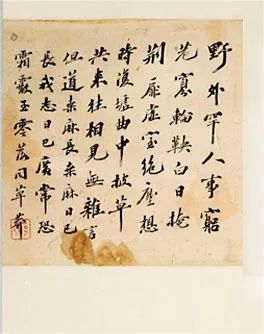 野外罕人事窮
巷寡輪鞅白日掩
荊扉虛室絕塵想
時復墟曲中披草
共來往相見無雜言
但道桑麻長桑麻日已
長我志日已廣常恐
霜霰至零落同草莽